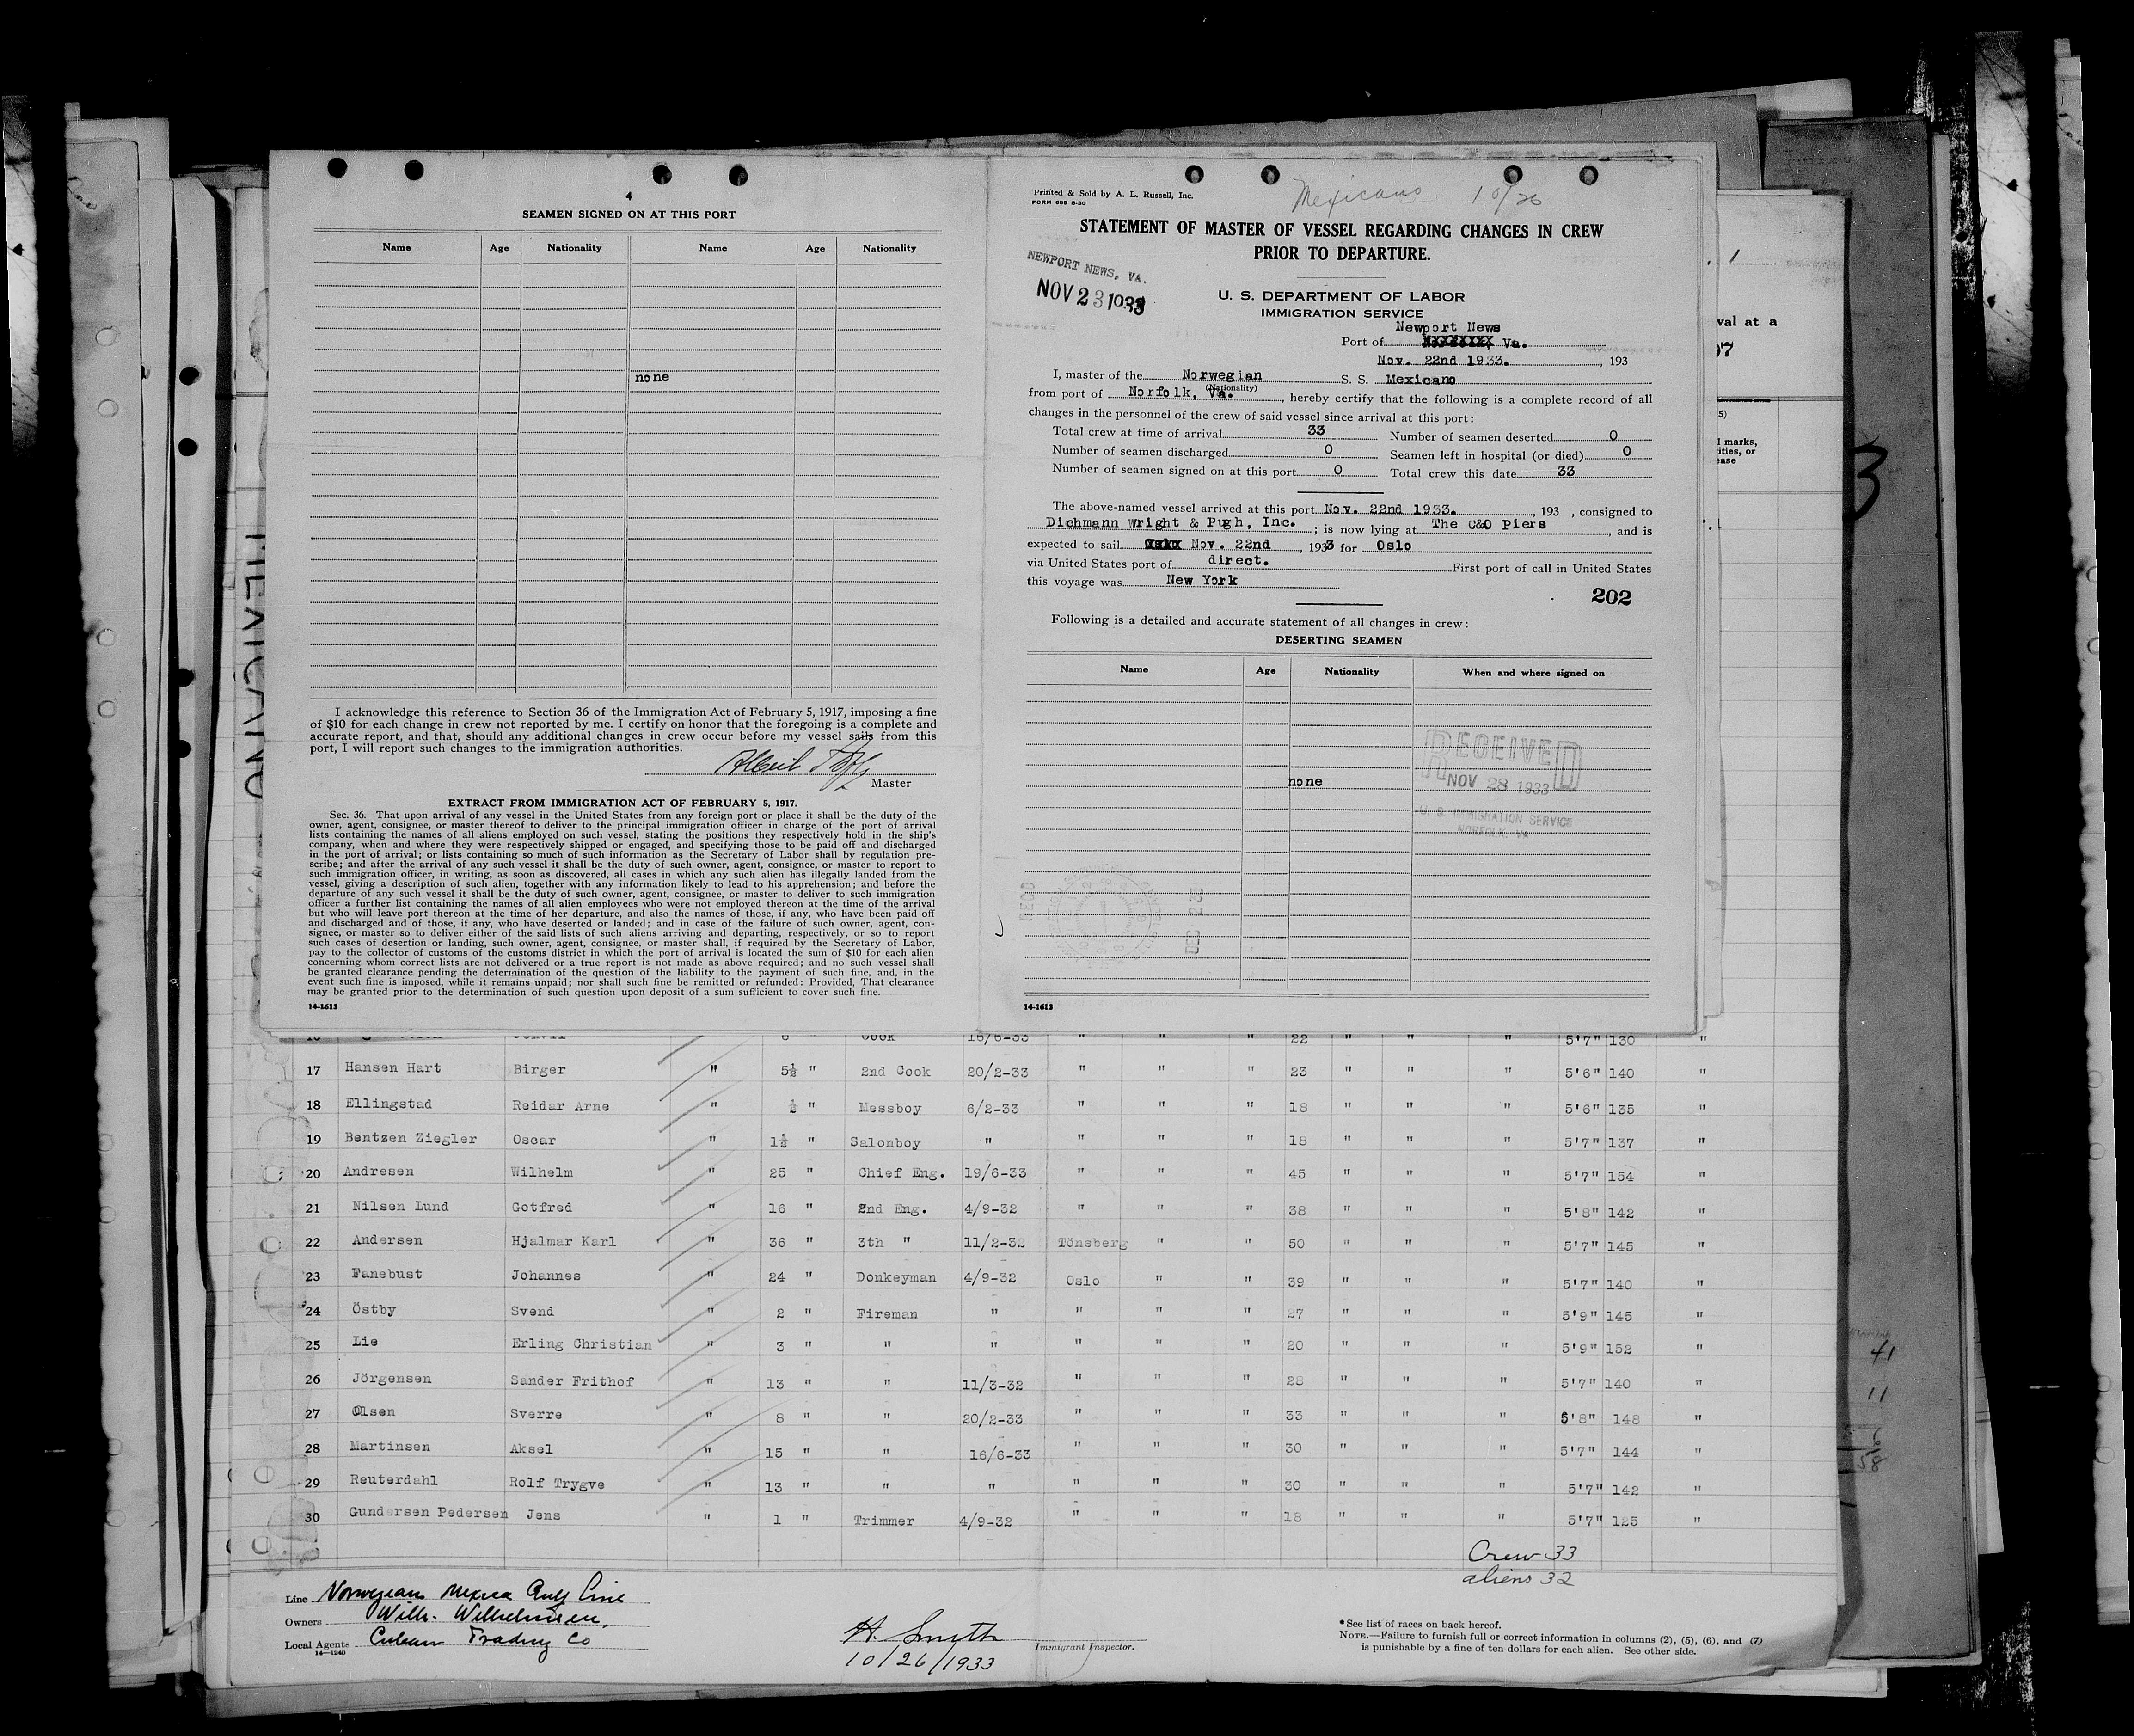 4
SEAMEN SIGNED ON AT THIS PORT
Name Age Nationality Name Age Nationality
none
I acknowledge this reference to Section 36 of the Immigration Act of February 5, 1917, imposing a fine
of $10 for each change in crew not reported by me. I certify on honor that the foregoing is a complete and
accurate report, and that, should any additional changes in crew occur before my vessel sails from this
port, I will report such changes to the immigration authorities.
Master
EXTRACT FROM IMMIGRATION ACT OF FEBRUARY 5, 1917.
Sec. 36. That upon arrival of any vessel in the United States from any foreign port or place it shall be the duty of the
owner, agent, consignee, or master thereof to deliver to the principal immigration officer in charge of the port of arrival
lists containing the names of all aliens employed on such vessel, stating the positions they respectively hold in the ship's
company, when and where they were respectively shipped or engaged, and specifying those to be paid off and discharged
in the port of arrival; or lists containing so much of such information as the Secretary of Labor shall by regulation pre-
scribe; and after the arrival of any such vessel it shall be the duty of such owner, agent, consignee, or master to report to
such immigration officer, in writing, as soon as discovered, all cases in which any such alien has illegally landed from the
vessel, giving a description of such alien, together with any information likely to lead to his apprehension; and before the
departure of any such vessel it shall be the duty of such owner, agent, consignee, or master to deliver to such immigration
officer a further list containing the names of all alien employees who were not employed thereon at the time of the arrival
but who will leave port thereon at the time of her departure, and also the names of those, if any, who have been paid off
and discharged and of those, if any, who have deserted or landed; and in case of the failure of such owner, agent, con-
signee, or master so to deliver either of the said lists of such aliens arriving and departing, respectively, or so to report
such cases of desertion or landing, such owner, agent, consignee, or master shall, if required by the Secretary of Labor,
pay to the collector of customs of the customs district in which the port of arrival is located the sum of $10 for each alien
concerning whom correct lists are not delivered or a true report is not made as above required; and no such vessel shall
be granted clearance pending the determination of the question of the liability to the payment of such fine, and, in the
event such fine is imposed, while it remains unpaid; nor shall such fine be remitted or refunded: Provided, That clearance
may be granted prior to the determination of such question upon deposit of a sum sufficient to cover such fine.
14-1613
Printed & Sold by A. L. Russell, Inc.
FORM 689 8-30
Mexicano 10/26
STATEMENT OF MASTER OF VESSEL REGARDING CHANGES IN CREW
PRIOR TO DEPARTURE.
NEWPORT NEWS, VA.
NOV 23 1933
U. S. DEPARTMENT OF LABOR
IMMIGRATION SERVICE
Newport News
Port of Va.
Nov. 22nd 1933. , 193
I, master of the Norwegian S. S. Mexicano
(Nationality)
from port of Norfolk, Va. , hereby certify that the following is a complete record of all
changes in the personnel of the crew of said vessel since arrival at this port:
Total crew at time of arrival 33 Number of seamen deserted 0
Number of seamen discharged 0 Seamen left in hospital (or died) 0
Number of seamen signed on at this port 0 Total crew this date 33
The above-named vessel arrived at this port Nov. 22nd 1933. , 193 , consigned to
Dichmann Wright & Pugh, Inc. ; is now lying at The C&O Piers , and is
expected to sail Nov. 22nd , 1933 for Oslo
via United States port of direct. First port of call in United States
this voyage was New York
202
Following is a detailed and accurate statement of all changes in crew:
DESERTING SEAMEN
Name Age Nationality When and where signed on
none
RECEIVED
NOV 28 1933
U. S. IMMIGRATION SERVICE
NORFOLK, VA
DEC 2 33
14-1613
val at a
marks,
ities, or
ease
3
Cook 16/6-33 " " " 22 " " " 5'7" 130 "
17 Hansen Hart Birger " 5½ " 2nd Cook 20/2-33 " " " 23 " " " 5'6" 140 "
18 Ellingstad Reidar Arne " ½ " Messboy 6/2-33 " " " 18 " " " 5'6" 135 "
19 Bentzen Ziegler Oscar " 1½ " Salonboy " " " " 18 " " " 5'7" 137 "
20 Andresen Wilhelm " 25 " Chief Eng. 19/6-33 " " " 45 " " " 5'7" 154 "
21 Nilsen Lund Gotfred " 16 " 2nd Eng. 4/9-32 " " " 38 " " " 5'8" 142 "
22 Andersen Hjalmar Karl " 36 " 3th " 11/2-32 Tönsberg " " 50 " " " 5'7" 145 "
23 Fanebust Johannes " 24 " Donkeyman 4/9-32 Oslo " " 39 " " " 5'7" 140 "
24 Östby Svend " 2 " Fireman " " " " 27 " " " 5'9" 145 "
25 Lie Erling Christian " 3 " " " " " " 20 " " " 5'9" 152 "
26 Jörgensen Sander Frithof " 13 " " 11/3-32 " " " 28 " " " 5'7" 140 "
27 Olsen Sverre " 8 " " 20/2-33 " " " 33 " " " 5'8" 148 "
28 Martinsen Aksel " 15 " " 16/6-33 " " " 30 " " " 5'7" 144 "
29 Reuterdahl Rolf Trygve " 13 " " " " " " 30 " " " 5'7" 142 "
30 Gundersen Pedersen Jens " 1 " Trimmer 4/9-32 " " " 18 " " " 5'7" 125 "
41
11
58
Crew 33
aliens 32
Line Norwegian Mexico Gulf Line
Owners Wilh. Wilhelmsen,
Local Agents Cuban Trading Co
14-1240
H. Smith
Immigrant Inspector.
10/26/1933
* See list of races on back hereof.
NOTE.—Failure to furnish full or correct information in columns (2), (5), (6), and (7)
is punishable by a fine of ten dollars for each alien. See other side.